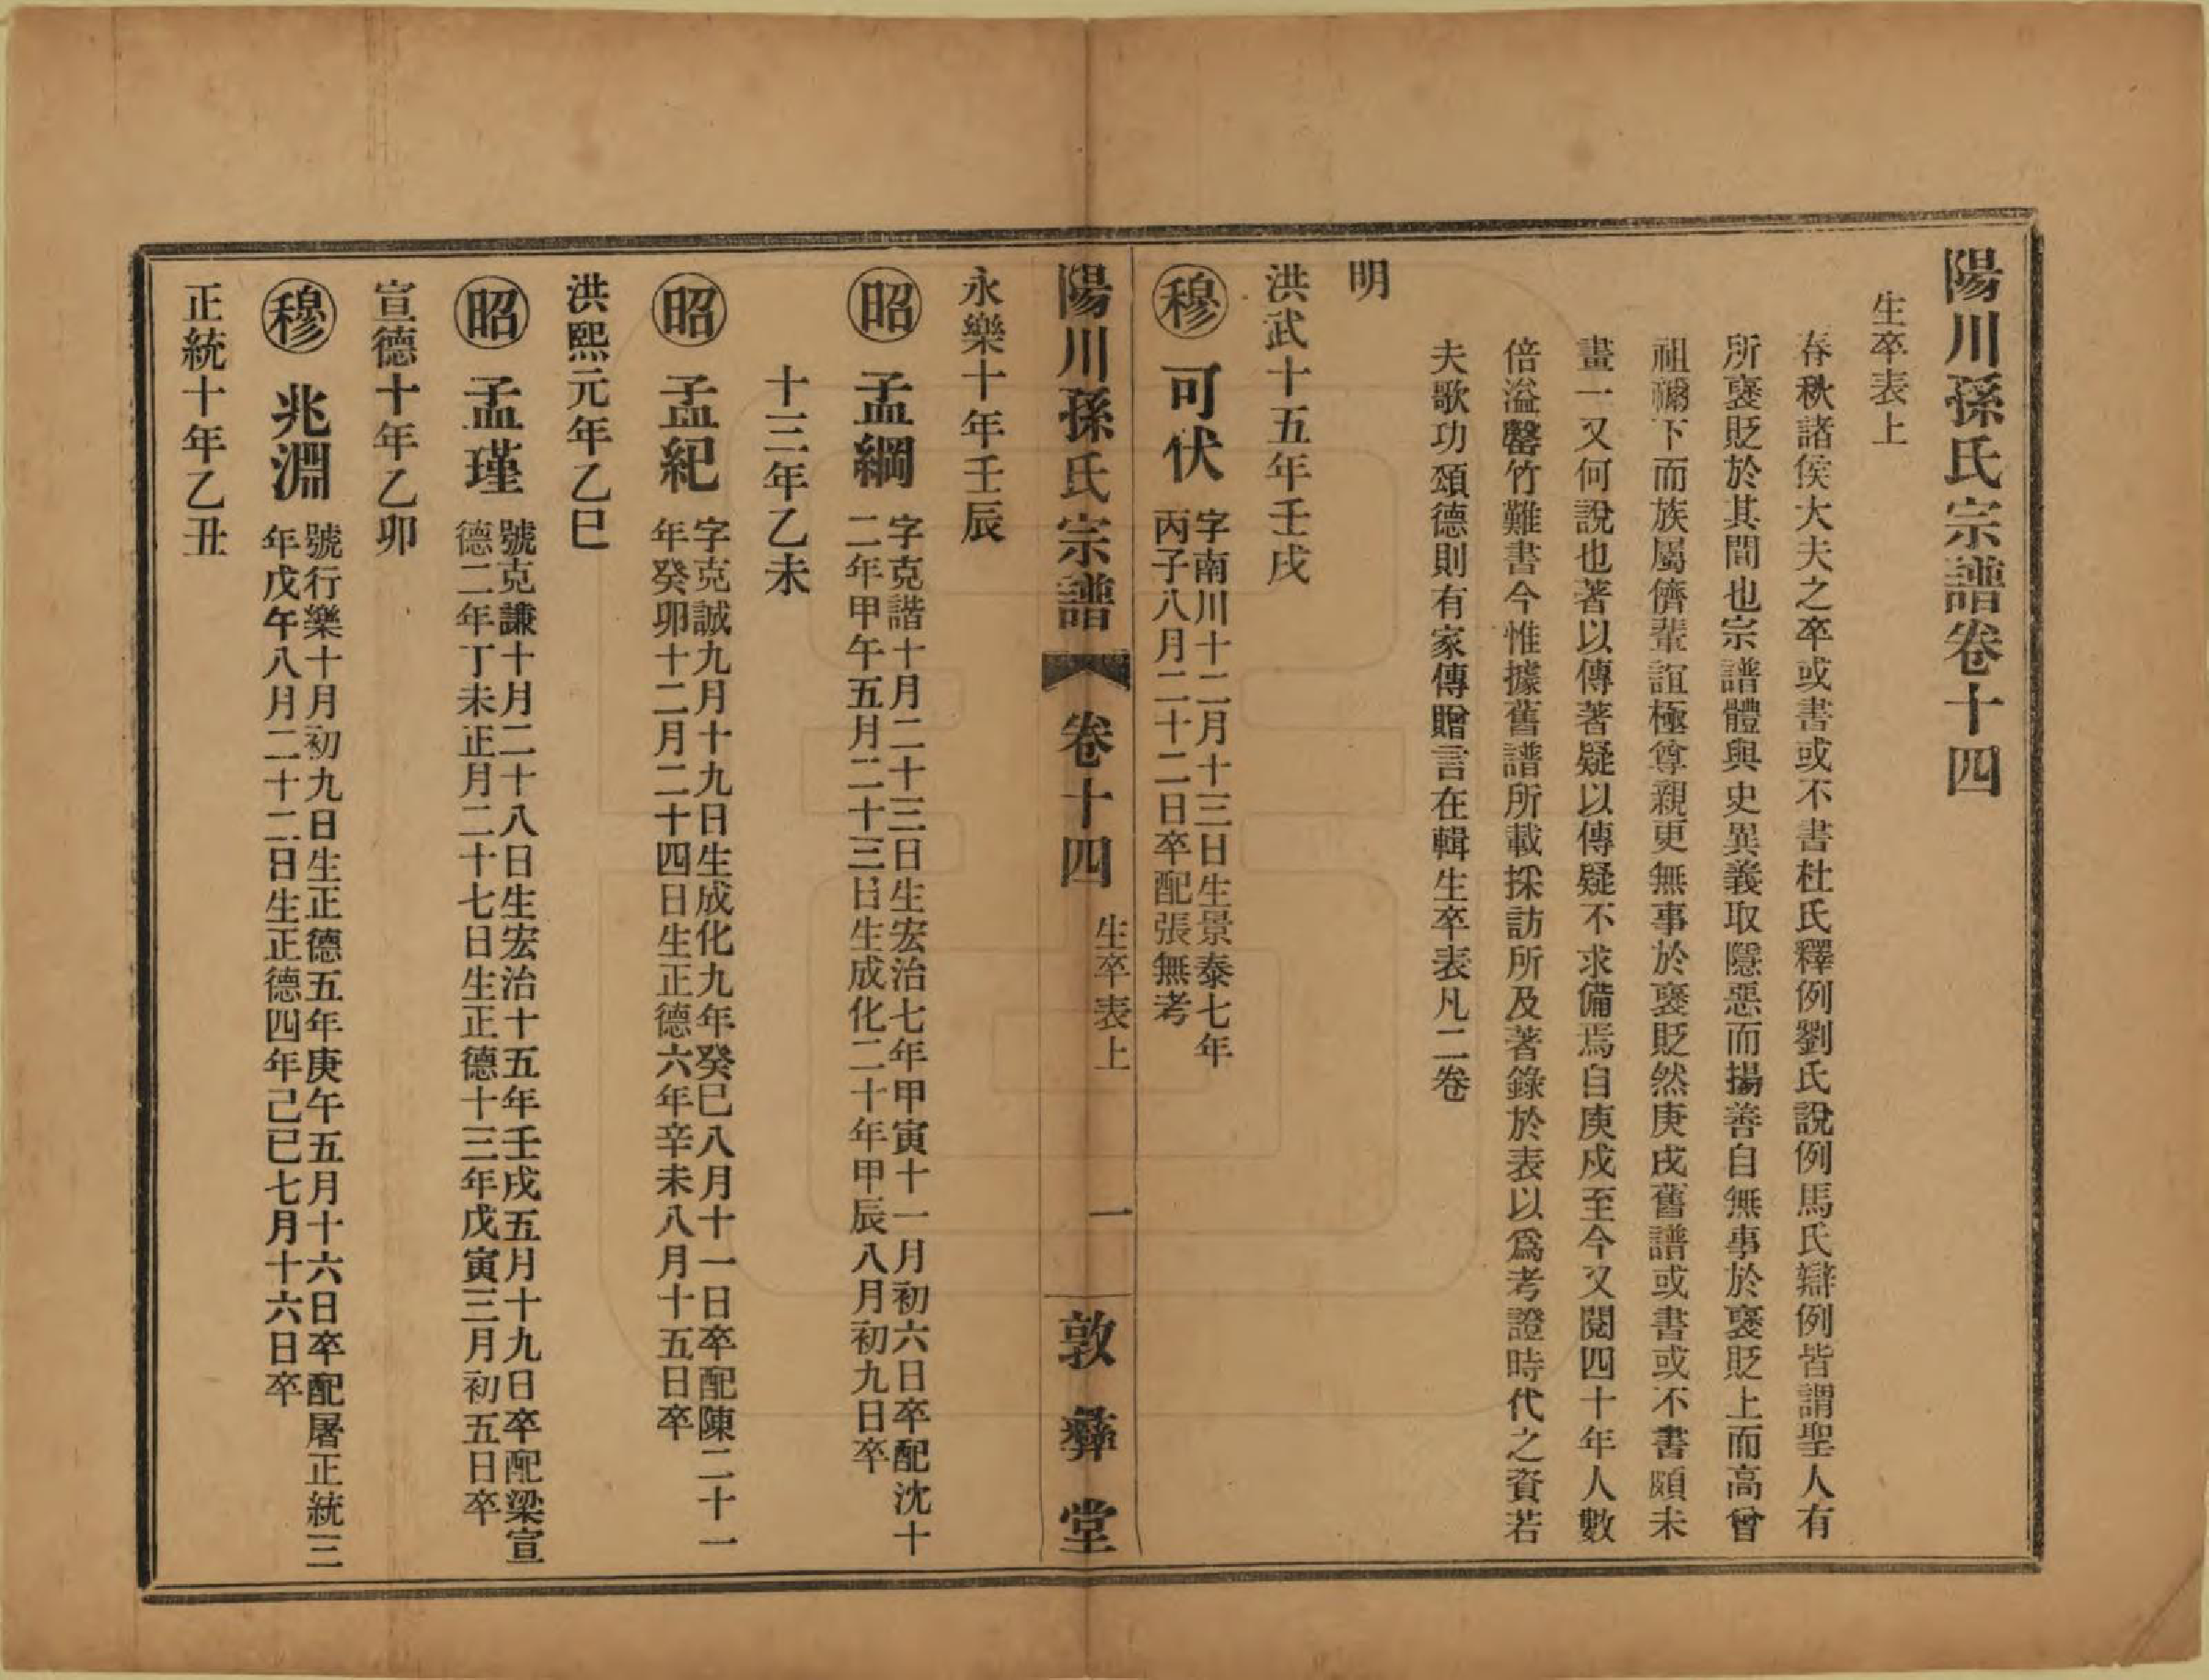 陽川孫氏宗譜卷十四
生卒表上
春秋諸侯大夫之卒或書或不書杜氏釋例劉氏說例馬氏辯例皆謂聖人有
所褒貶於其間也宗譜體與史異義取隱惡而揚善自無事於褒貶上而高曾
祖禰下而族屬儕輩誼極尊親更無事於褒貶然庚戌舊譜或書或不書頗未
畫一又何說也著以傳著疑以傳疑不求備焉自庚戌至今又閱四十年人數
倍溢罄竹難書今惟據舊譜所載採訪所及著錄於表以爲考證時代之資若
夫歌功頌德則有家傳贈言在輯生卒表凡二卷
明
洪武十五年壬戌
穆 可伏 字南川十二月十三日生景泰七年
丙子八月二十二日卒配張無考
陽川孫氏宗譜 卷十四 生卒表上 一 敦彝堂
永樂十年壬辰
昭 孟綱 字克諧十月二十三日生宏治七年甲寅十一月初六日卒配沈十
二年甲午五月二十三日生成化二十年甲辰八月初九日卒
十三年乙未
昭 孟紀 字克誠九月十九日生成化九年癸巳八月十一日卒配陳二十一
年癸卯十二月二十四日生正德六年辛未八月十五日卒
洪熙元年乙巳
昭 孟瑾 號克謙十月二十八日生宏治十五年壬戌五月十九日卒配梁宣
德二年丁未正月二十七日生正德十三年戊寅三月初五日卒
宣德十年乙卯
穆 兆淵 號行樂十月初九日生正德五年庚午五月十六日卒配屠正統三
年戊午八月二十二日生正德四年己巳七月十六日卒
正統十年乙丑